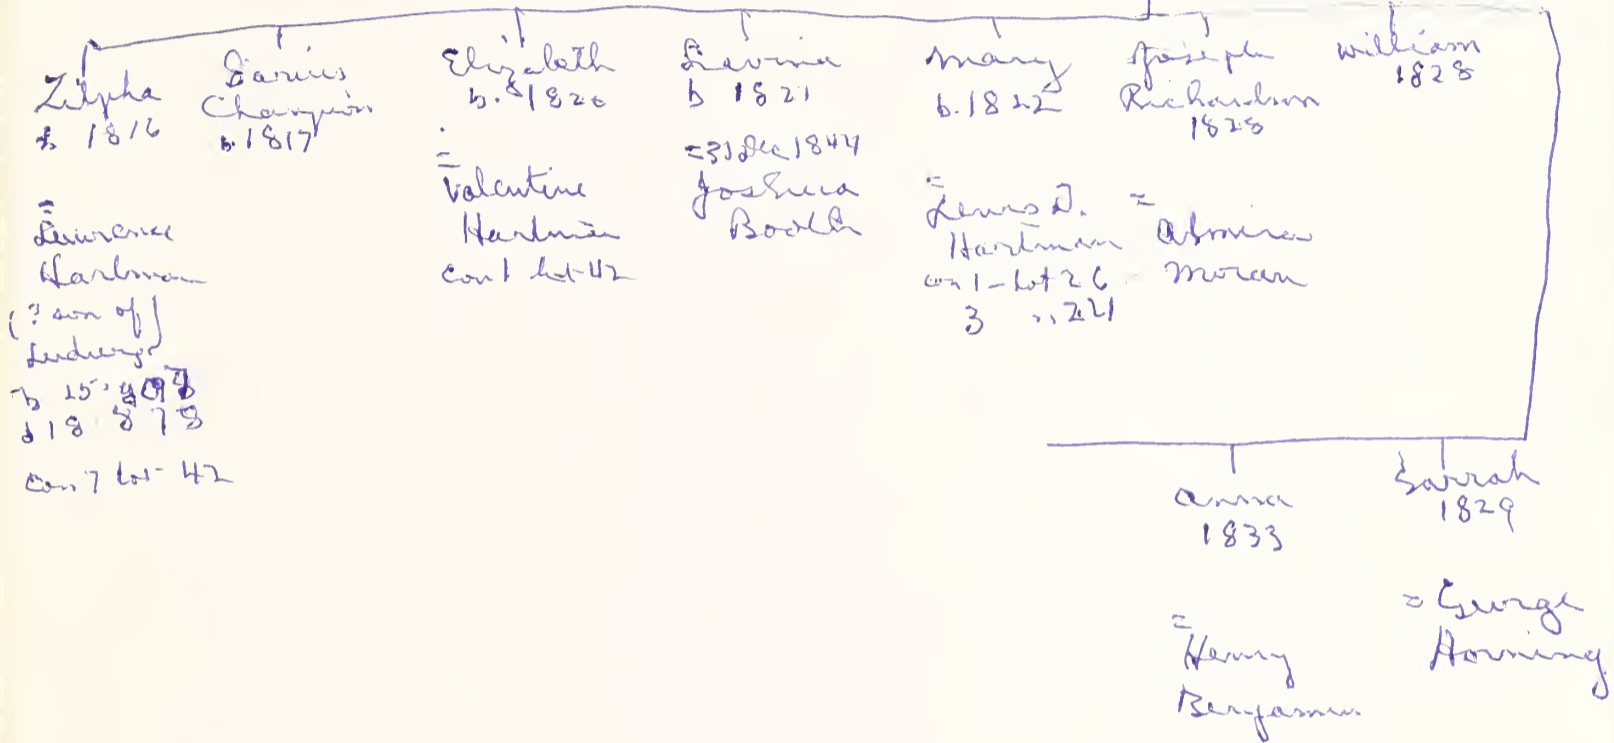 Zilpha
b 1816
=
Lawrence
Hartman
(? son of)
Ludwig
b 15
d 18 878
con 7 lot 42
Darius
Champion
b. 1817
Elizabeth
b. 1820
=
Valentine
Hartman
con 1 lot 42
Lavina
b 1821
= 31 Dec 1844
Joshua
Booth
Mary
b. 1822
=
Lewis D.
Hartman
con 1 - Lot 26
3 " 221
Joseph
Richardson
1828
=
Almira
Moran
William
1828
Anna
1833
=
Henry
Benjamin
Sarrah
1829
= George
Horning